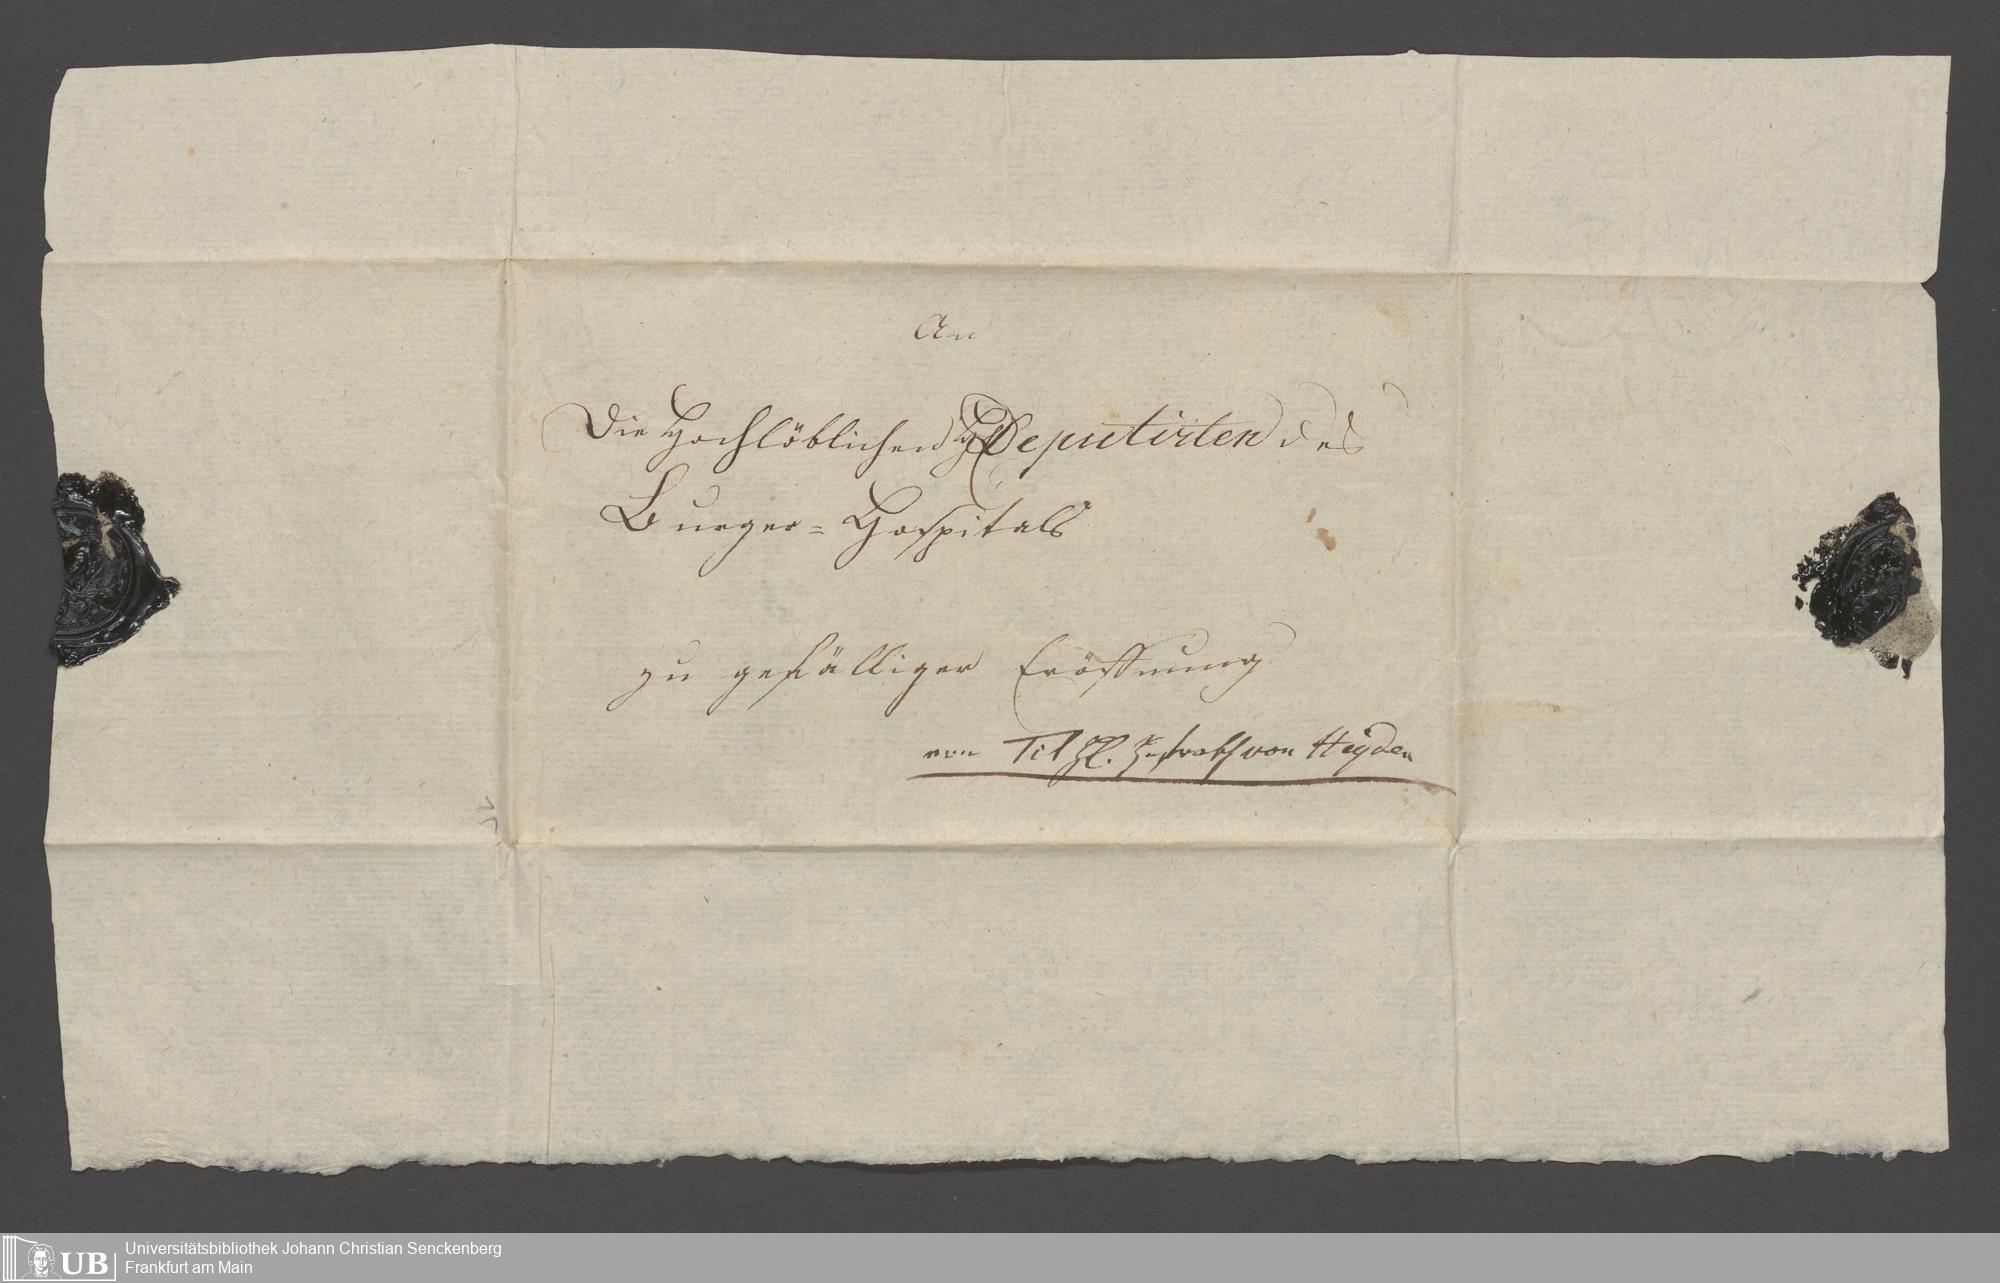 An
Die Hochlöblichen Deputirten des
Burger=Hospitals
zu gefälliger Eröffnung
von Tit von Heyden
UB
Universitätsbibliothek Johann Christian Senckenberg
Frankfurt am Main